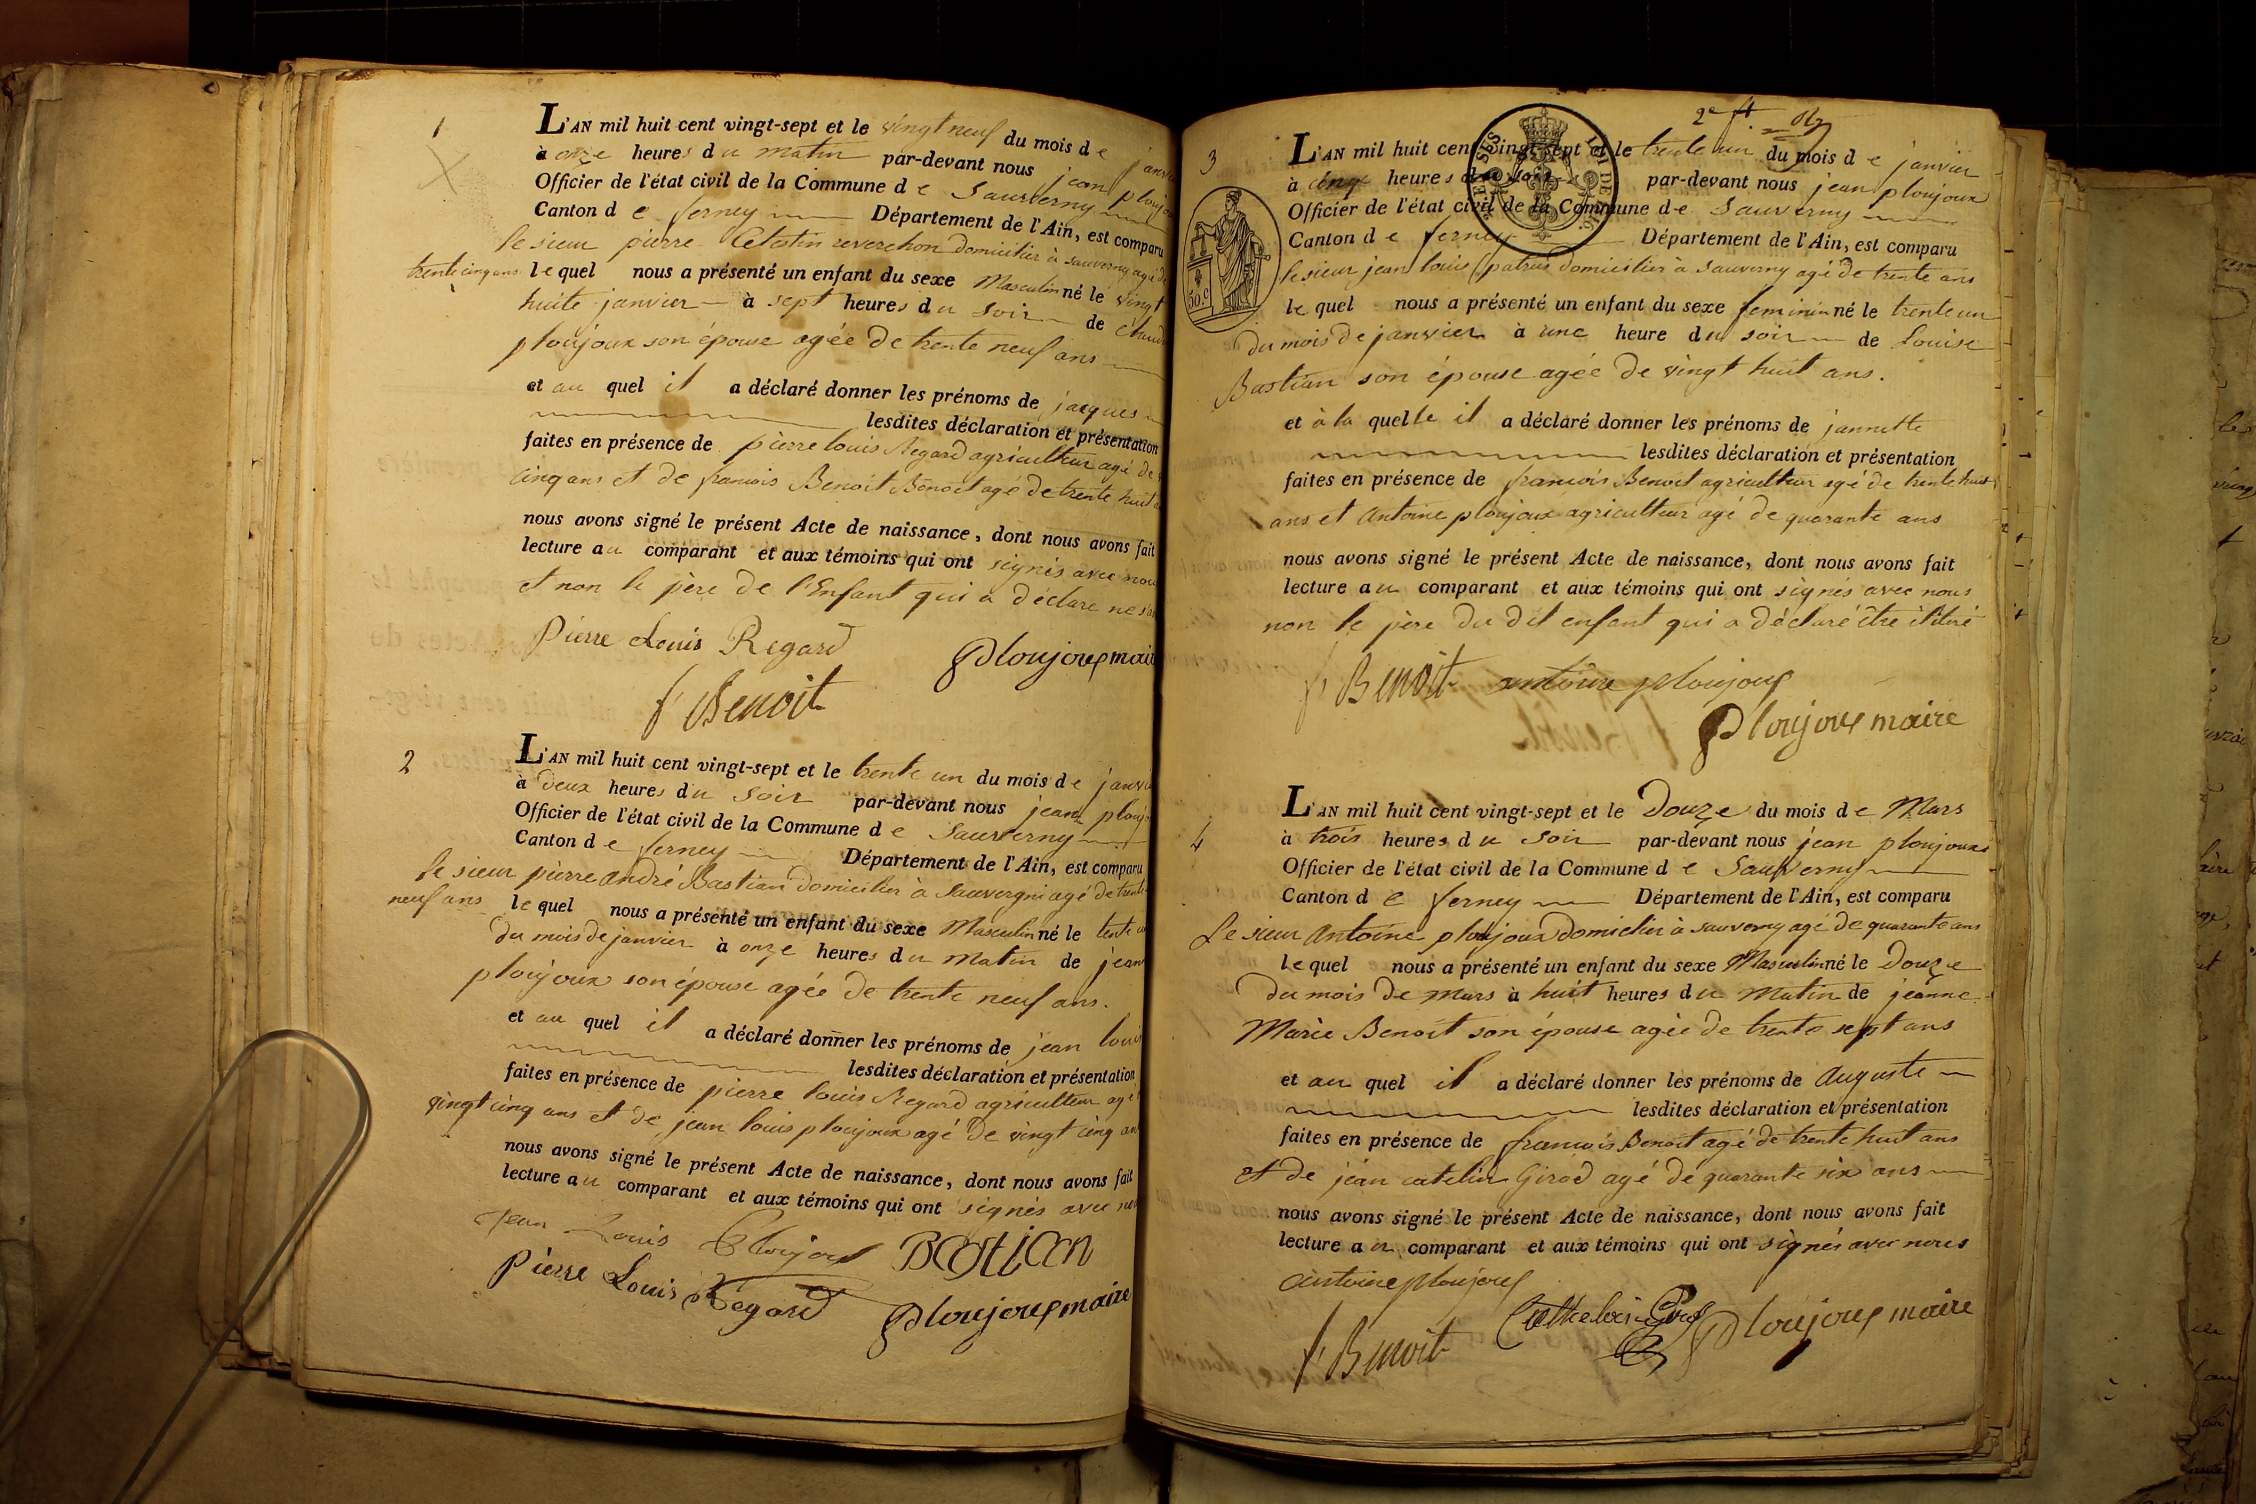 1
L'AN mil huit cent vingt-sept et le vingt neuf du mois de janvi
à onze heures du matin par-devant nous jean ploujou
Officier de l'état civil de la Commune de Sauverny
Canton de ferney Département de l'Ain, est comparu
le sieur pierre Celestin reverchon domicilier à sauverny agé de
trente cinq ans lequel nous a présenté un enfant du sexe Masculin né le vingt
huite janvier à sept heures du soir de Claud
ploujoux son épouse agée de trente neuf ans
et au quel il a déclaré donner les prénoms de jacques
lesdites déclaration et présentation
faites en présence de pierre louis Regard agriculteur agé de
cinq ans et de francois Benoit Benoit agé de trente huit
nous avons signé le présent Acte de naissance, dont nous avons fait
lecture au comparant et aux témoins qui ont signés avec nou
et non le père de l'Enfant qui a déclare ne s
Pierre Louis Regard
Ploujoux maire
f Benoit
2
L'AN mil huit cent vingt-sept et le trente un du mois de janvi
à deux heures du soir par-devant nous jean plouj
Officier de l'état civil de la Commune de Sauverny
Canton de ferney Département de l'Ain, est comparu
le sieur pierre andré Bastian domicilier à Sauvergni agé de trente
neuf ans lequel nous a présenté un enfant du sexe Masculin né le tente
du mois de janvier à onze heures du matin de jean
ploujoux son épouse agée de trente neuf ans.
et au quel il a déclaré donner les prénoms de jean louis
lesdites déclaration et présentation
faites en présence de pierre louis Regard agriculteur agé
vingt cinq ans et de jean louis ploujoux agé de vingt cinq an
nous avons signé le présent Acte de naissance, dont nous avons fait
lecture au comparant et aux témoins qui ont signés avec nou
Jean Louis Ploujoux Bastian
Pierre Louis Regard
Ploujoux maire
2e ft
3
L'AN mil huit cent vingt-sept et le trente un du mois de janvier
à cinq heures du soir par-devant nous jean ploujoux
Officier de l'état civil de la Commune de Sauverny
Canton de ferney Département de l'Ain, est comparu
50.c
le sieur jean louis patrus domicilier à sauverny agé de trente ans
lequel nous a présenté un enfant du sexe feminin né le trente un
du mois de janvier à une heure du soir de Louise
Bastian son épouse agée de vingt huit ans.
et à la quelle il a déclaré donner les prénoms de jannette
lesdites déclaration et présentation
faites en présence de francois Benoit agriculteur agé de trente huit
ans et Antoine ploujoux agriculteur agé de quarante ans
nous avons signé le présent Acte de naissance, dont nous avons fait
lecture au comparant et aux témoins qui ont signés avec nous
non le père du dit enfant qui a déclaré être ilitéré
f Benoit antoine ploujoux
Ploujoux maire
4
L'AN mil huit cent vingt-sept et le Douze du mois de Mars
à trois heures du soir par-devant nous jean ploujoux
Officier de l'état civil de la Commune de Sauverny
Canton de ferney Département de l'Ain, est comparu
Le sieur Antoine ploujoux domicilier à sauverny agé de quarante ans
lequel nous a présenté un enfant du sexe Masculin né le Douze
du mois de mars à huit heures du Matin de jeanne
Marie Benoit son épouse agée de trente sept ans
et au quel il a déclaré donner les prénoms de Auguste
lesdites déclaration et présentation
faites en présence de francois Benoit agé de trente huit ans
et de jean catelin Girod agé de quarante six ans
nous avons signé le présent Acte de naissance, dont nous avons fait
lecture au comparant et aux témoins qui ont signés avec nous
antoine ploujoux
f Benoit
Ploujoux maire